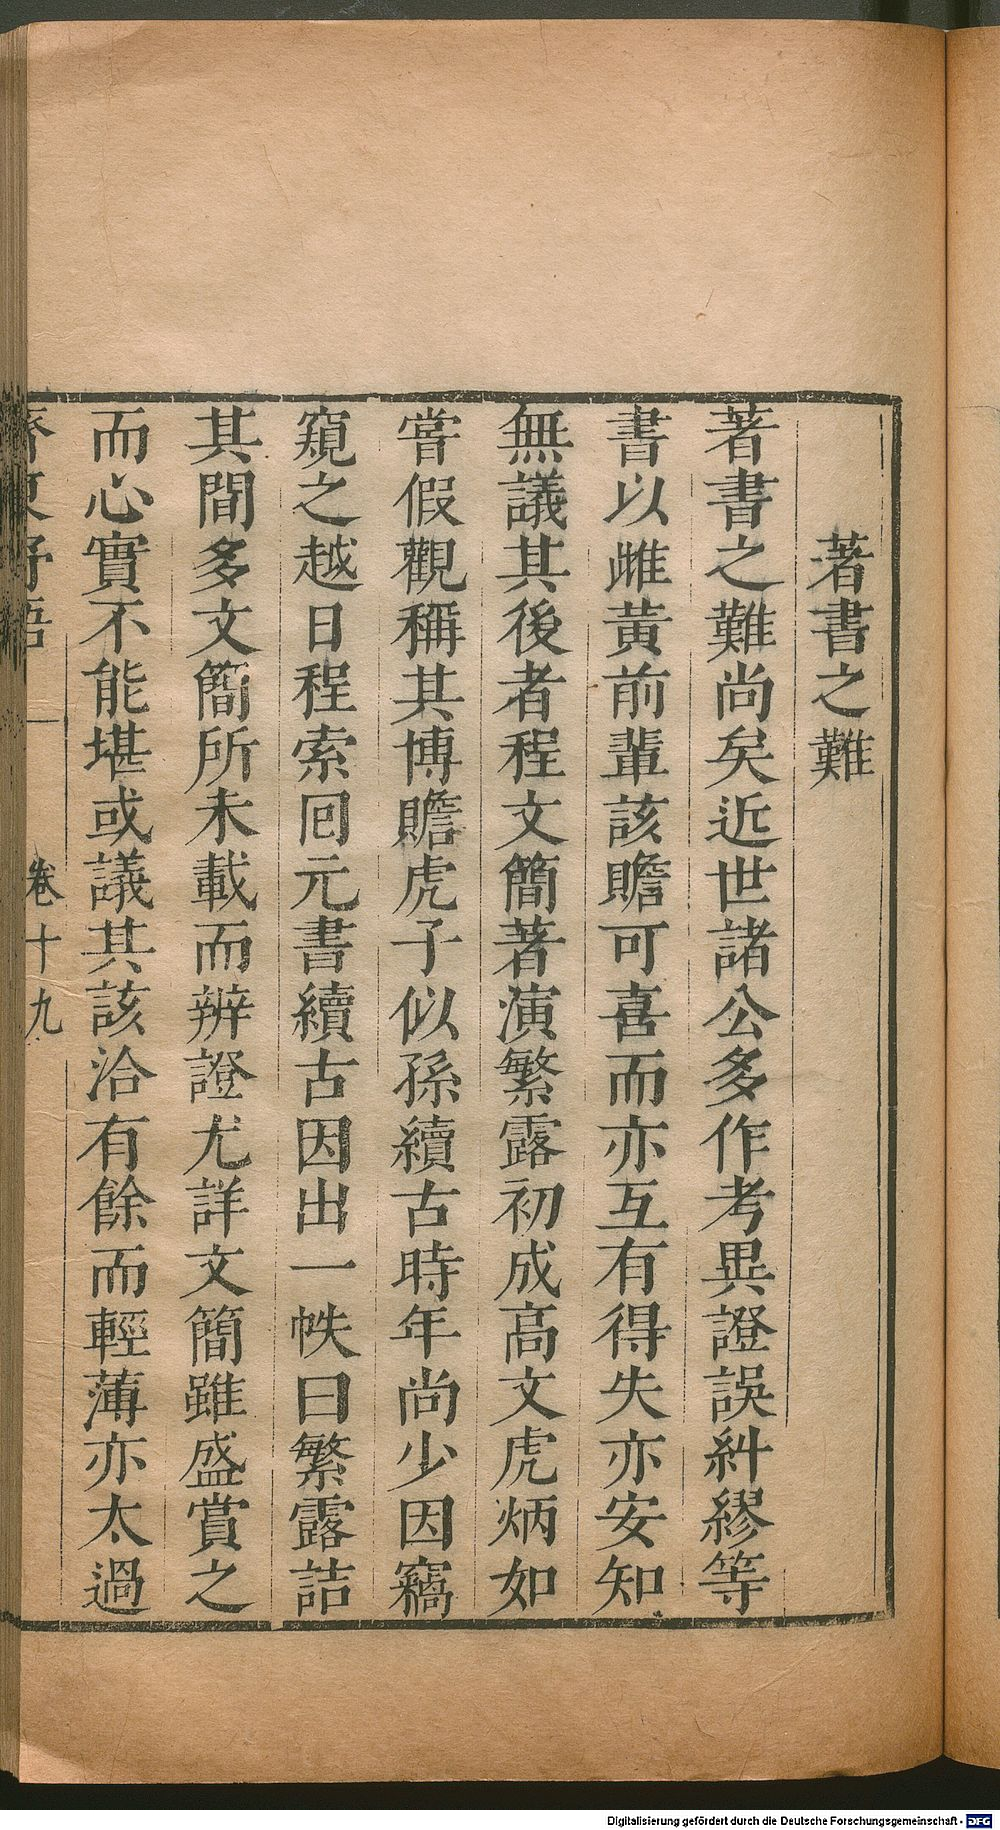 著書之難
著書之難尚矣近世諸公多作考異證誤糾繆等
書以雌黃前輩該贍可喜而亦互有得失亦安知
無議其後者程文簡著演繁露初成高文虎炳如
嘗假觀稱其博贍虎子似孫續古時年尚少因竊
窺之越日程索回元書續古因出一帙曰繁露詰
其間多文簡所未載而辨證尤詳文簡雖盛賞之
而心實不能堪或議其該洽有餘而輕薄亦太過
齊東野語 卷十九
Digitalisierung gefördert durch die Deutsche Forschungsgemeinschaft - DFG